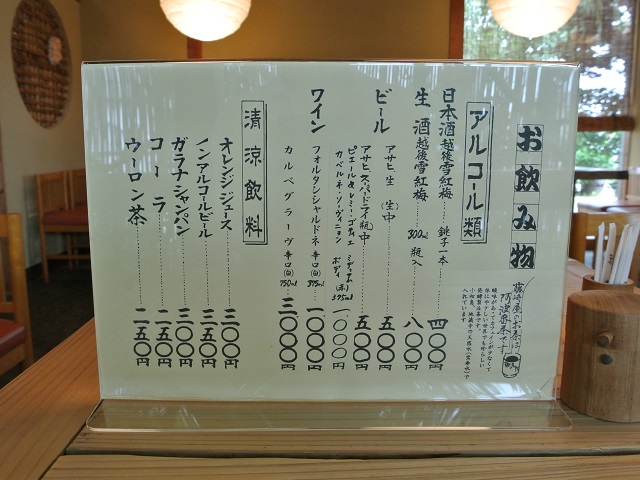 お飲み物
アルコール類
日本酒 越後雪紅梅 銚子一本 四〇〇円
生酒 越後雪紅梅 300ml 瓶入 八〇〇円
ビール アサヒ生(生中) 五〇〇円
アサヒスーパードライ瓶中 五〇〇円
ワイン
カベルネ・ソーヴィニヨン ボディ(赤) 375ml 一〇〇〇円
フォルタンシャルドネ 辛口(白) 375ml 一〇〇〇円
カルベグラーヴ 辛口(白) 750ml 三〇〇〇円
清涼飲料
オレンジジュース 三〇〇円
ノンアルコールビール 三五〇円
ガラナシャンパン 三〇〇円
コーラ 二五〇円
ウーロン茶 二五〇円
阿波番茶です
入れています